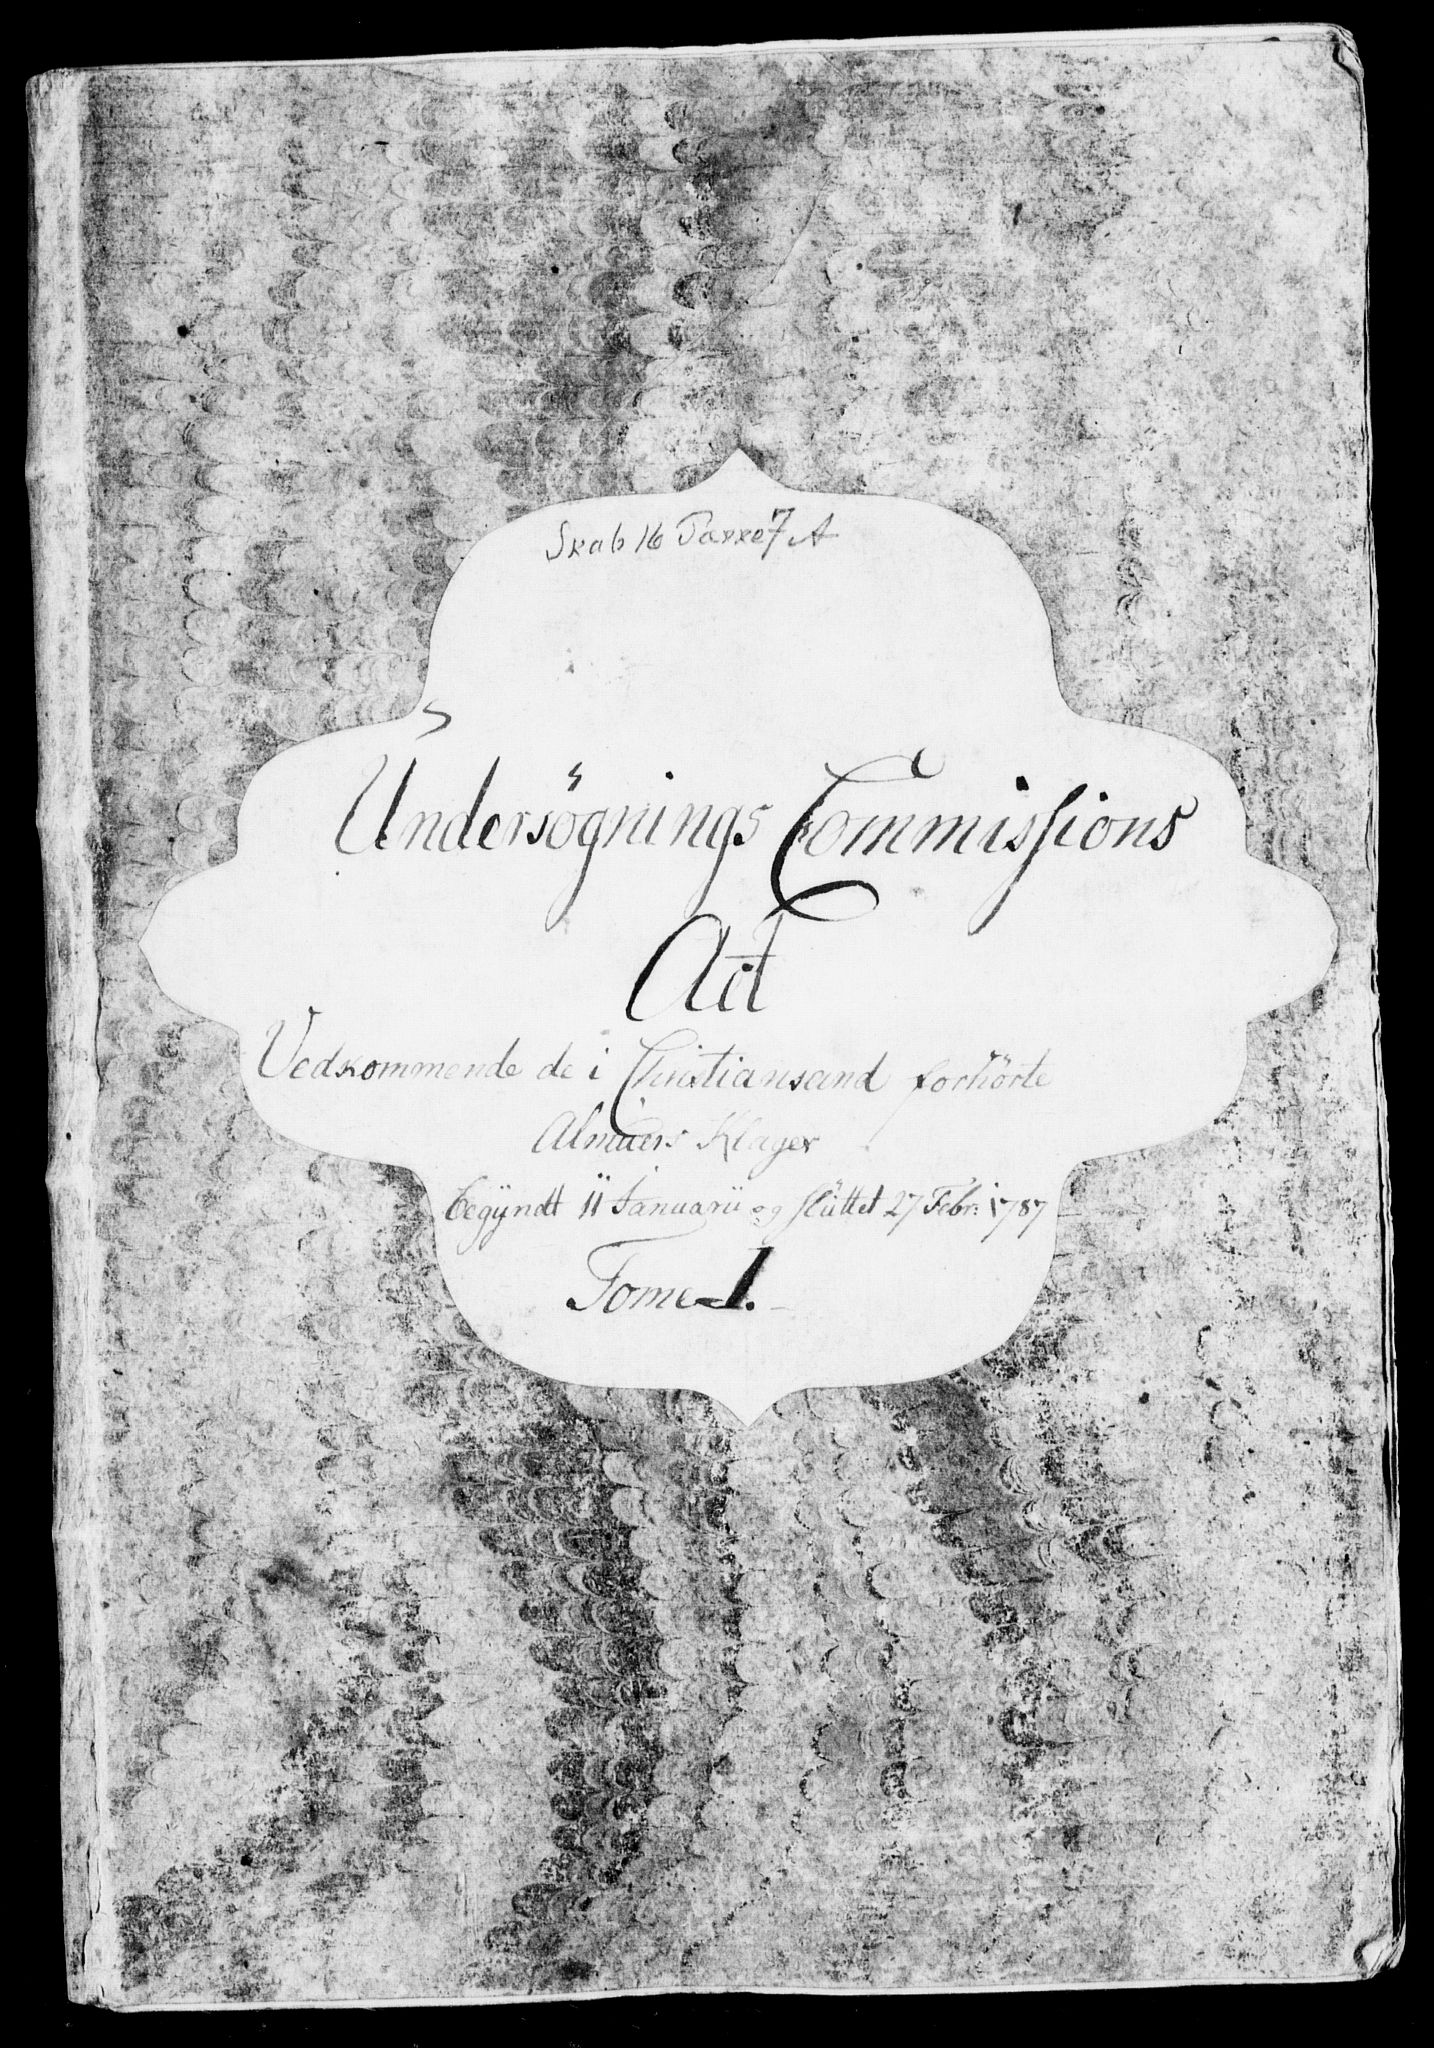 Skab 16 Pakke 7 A
Undersögnings Commissions
Act
Vedkommende de i Christiansand forhörte
Almues Klager
begÿndt 11 Januarii og slüttet 27 Febr: 1787
Tome I.